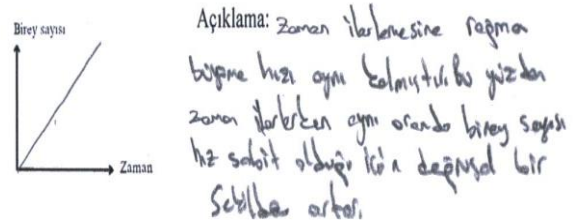 Birey sayısı
Zaman
Açıklama: Zaman ilerlemesine rağmen
büyüme hızı aynı kalmıştır. bu yüzden
zaman ilerlerken aynı oranda birey sayısı
hız sabit olduğu için değişal bir
Şekilde artar.